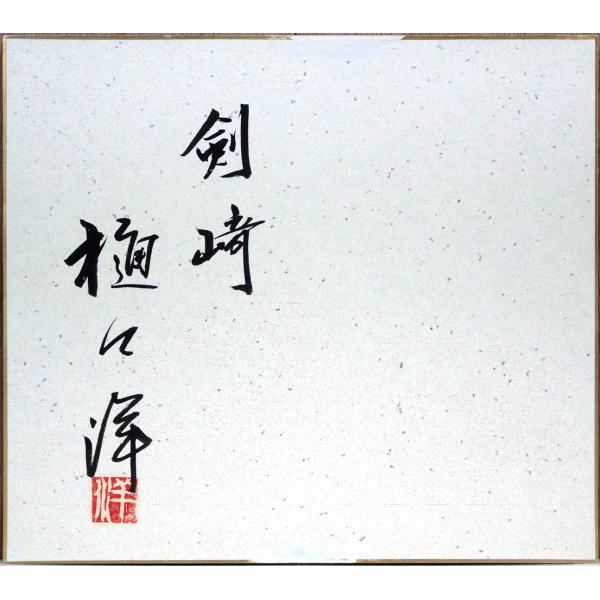 剣崎
樋口洋
洋